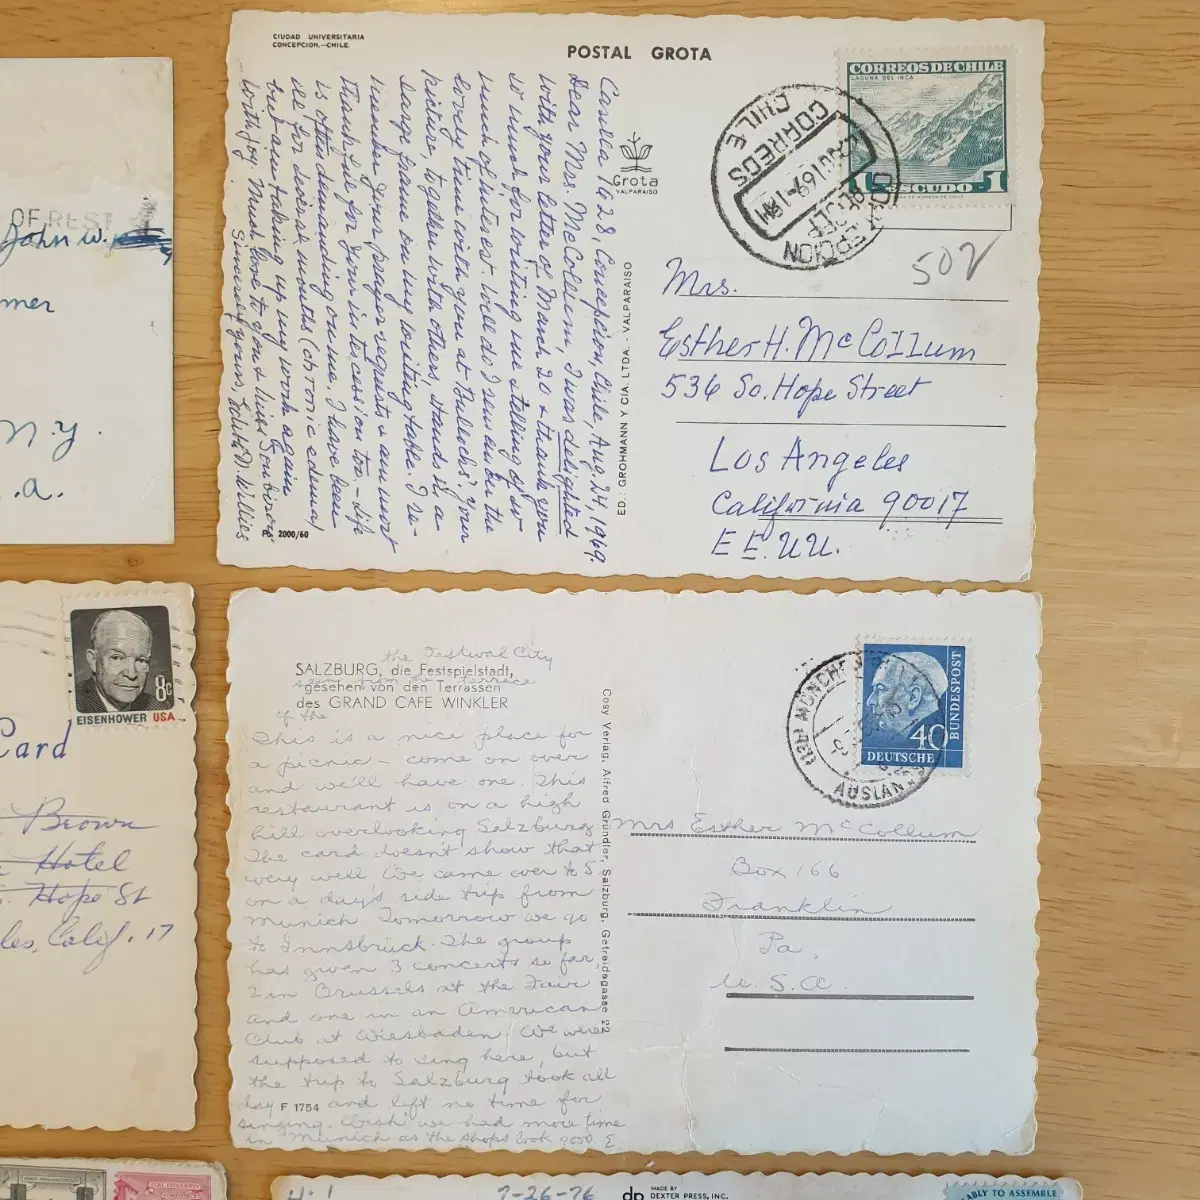 CIUDAD UNIVERSITARIA
CONCEPCION.—CHILE.
POSTAL GROTA
Casilla 1628, Concepción, Chile, Aug. 24, 1969.
Dear Mrs. McCollum, I was delighted
with your letter of March 20 & thank you
so much for writing me & telling of so
much of interest. Well do I remember the
lovely time with you at Bullocks! Your
picture, together with others, stands in a
large frame on my writing table. I re-
member your prayer requests & am most
thankful for your intercession too. – Life
is often demanding on me. I have been
ill for several months (chronic edema)
but am taking up my work again
with joy. Much love to you &
Sincerely yours, Edith D. Willies
P. 2000/60
Grota
VALPARAISO
ED.: GROHMANN Y CIA. LTDA. - VALPARAISO
CORREOS DE CHILE
LAGUNA DEL INCA
1 ESCUDO 1
CASA DE MONEDA DE CHILE
CORREOS
CHILE
502
Mrs.
Esther H. McCollum
536 So. Hope Street
Los Angeles
California 90017
EE. UU.
OF REST
John W.
mer
N.Y.
.a.
8c
EISENHOWER USA
Card
Brown
Hotel
Hope St
les, Calif. 17
the Festival City
SALZBURG, die Festspielstadt,
seen from the terrace
gesehen von den Terrassen
des GRAND CAFE WINKLER
of the
This is a nice place for
a picnic – come on over
and we'll have one. This
restaurant is on a high
hill overlooking Salzburg
The card doesn't show that
very well We came over to S
on a day's side trip from
Munich Tomorrow we go
to Innsbruck. The group
has given 3 concerts so far,
2 in Brussels at the Fair
and one in an American
Club at Wiesbaden. We were
supposed to sing here, but
the trip to Salzburg took all
day and left no time for
F 1754
singing. Wish we had more time
in Munich as the shops look good E
Cosy Verlag, Alfred Gründler, Salzburg, Getreidegasse 22
MÜNCHEN
AUSLAND
40
DEUTSCHE
BUNDESPOST
Mrs Esther McCollum
Box 166
Franklin
Pa.
U.S.A.
7-26-76
dp
MADE BY
DEXTER PRESS, INC.
ABLY TO ASSEMBLE